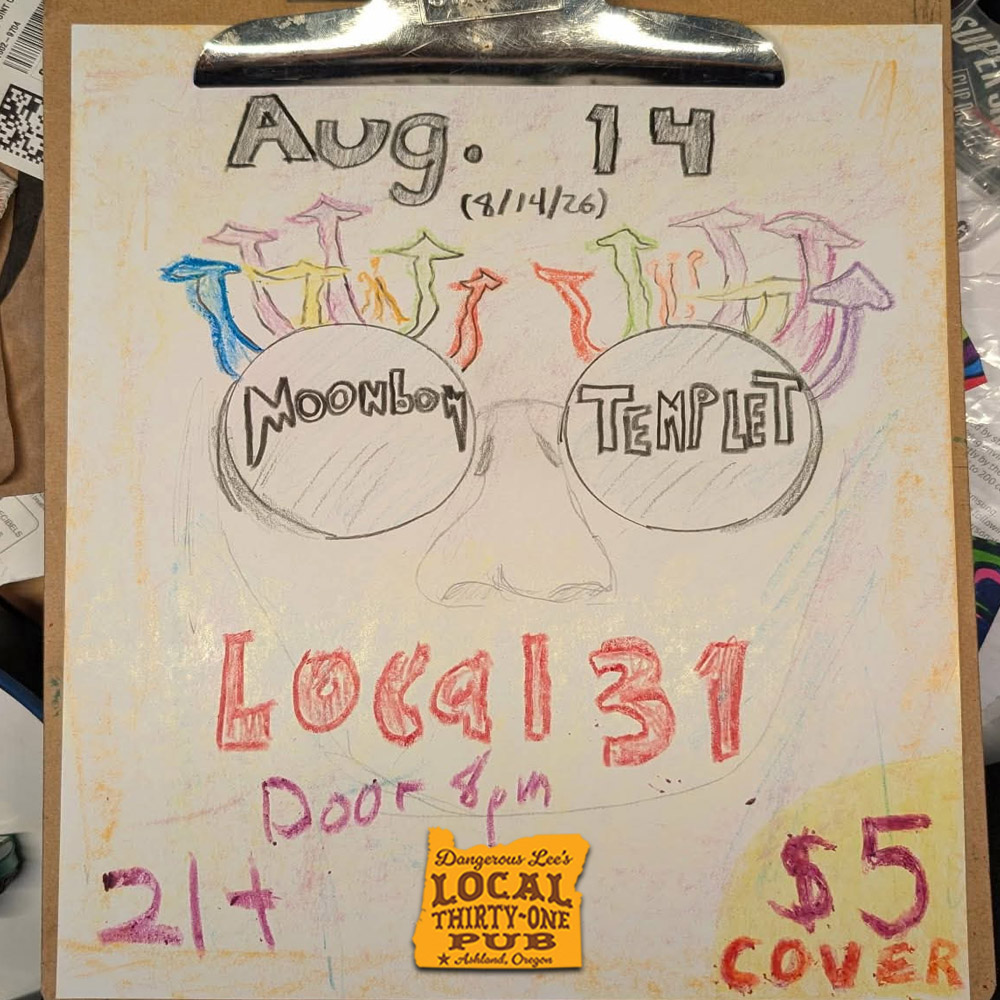 Aug. 14
(8/14/26)
MOONbOW
TEMPLET
Local 31
Door 8pm
21+
$5
COVER
Dangerous Lee's
LOCAL
THIRTY-ONE
PUB
Ashland, Oregon
SUPER